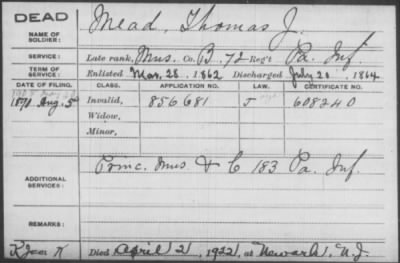 DEAD
NAME OF SOLDIER: Mead, Thomas J.
SERVICE: Late rank, Mus. Co. B, 72 Reg't Pa. Inf.
TERM OF SERVICE: Enlisted Mar. 28, 1862 Discharged July 20, 1864
DATE OF FILING. CLASS. APPLICATION NO. LAW. CERTIFICATE NO.
Aug. 5 Invalid, 856681 J 608240
Widow,
Minor,
ADDITIONAL SERVICES: Mus & C 183 Pa. Inf.
REMARKS:
Died April 21, 1922, at Newark, N.J.